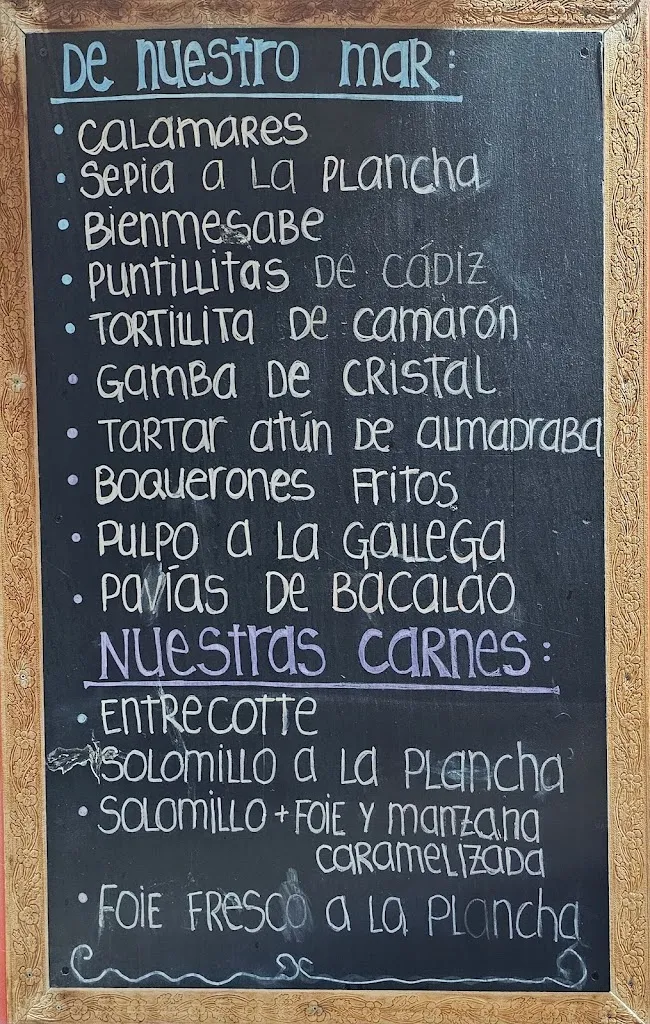 De nuestro mar:
• Calamares
• Sepia a la plancha
• Bienmesabe
• Puntillitas de Cádiz
• Tortillita de camarón
• Gamba de cristal
• Tartar atún de almadraba
• Boquerones fritos
• Pulpo a la gallega
• Pavías de bacalao
Nuestras carnes:
• Entrecotte
Solomillo a la plancha
• Solomillo + foie y manzana
caramelizada
• Foie fresco a la plancha